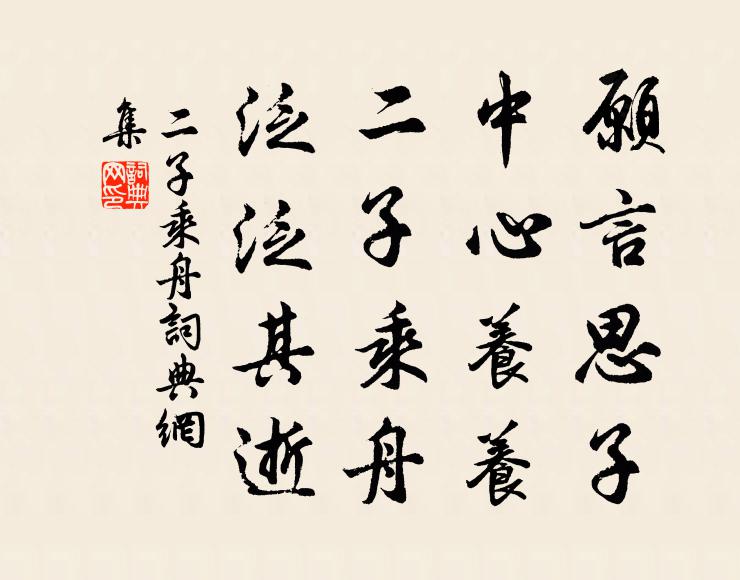 願言思子
中心養養
二子乘舟
泛泛其逝
二子乘舟詞典網
集
詞典
网印